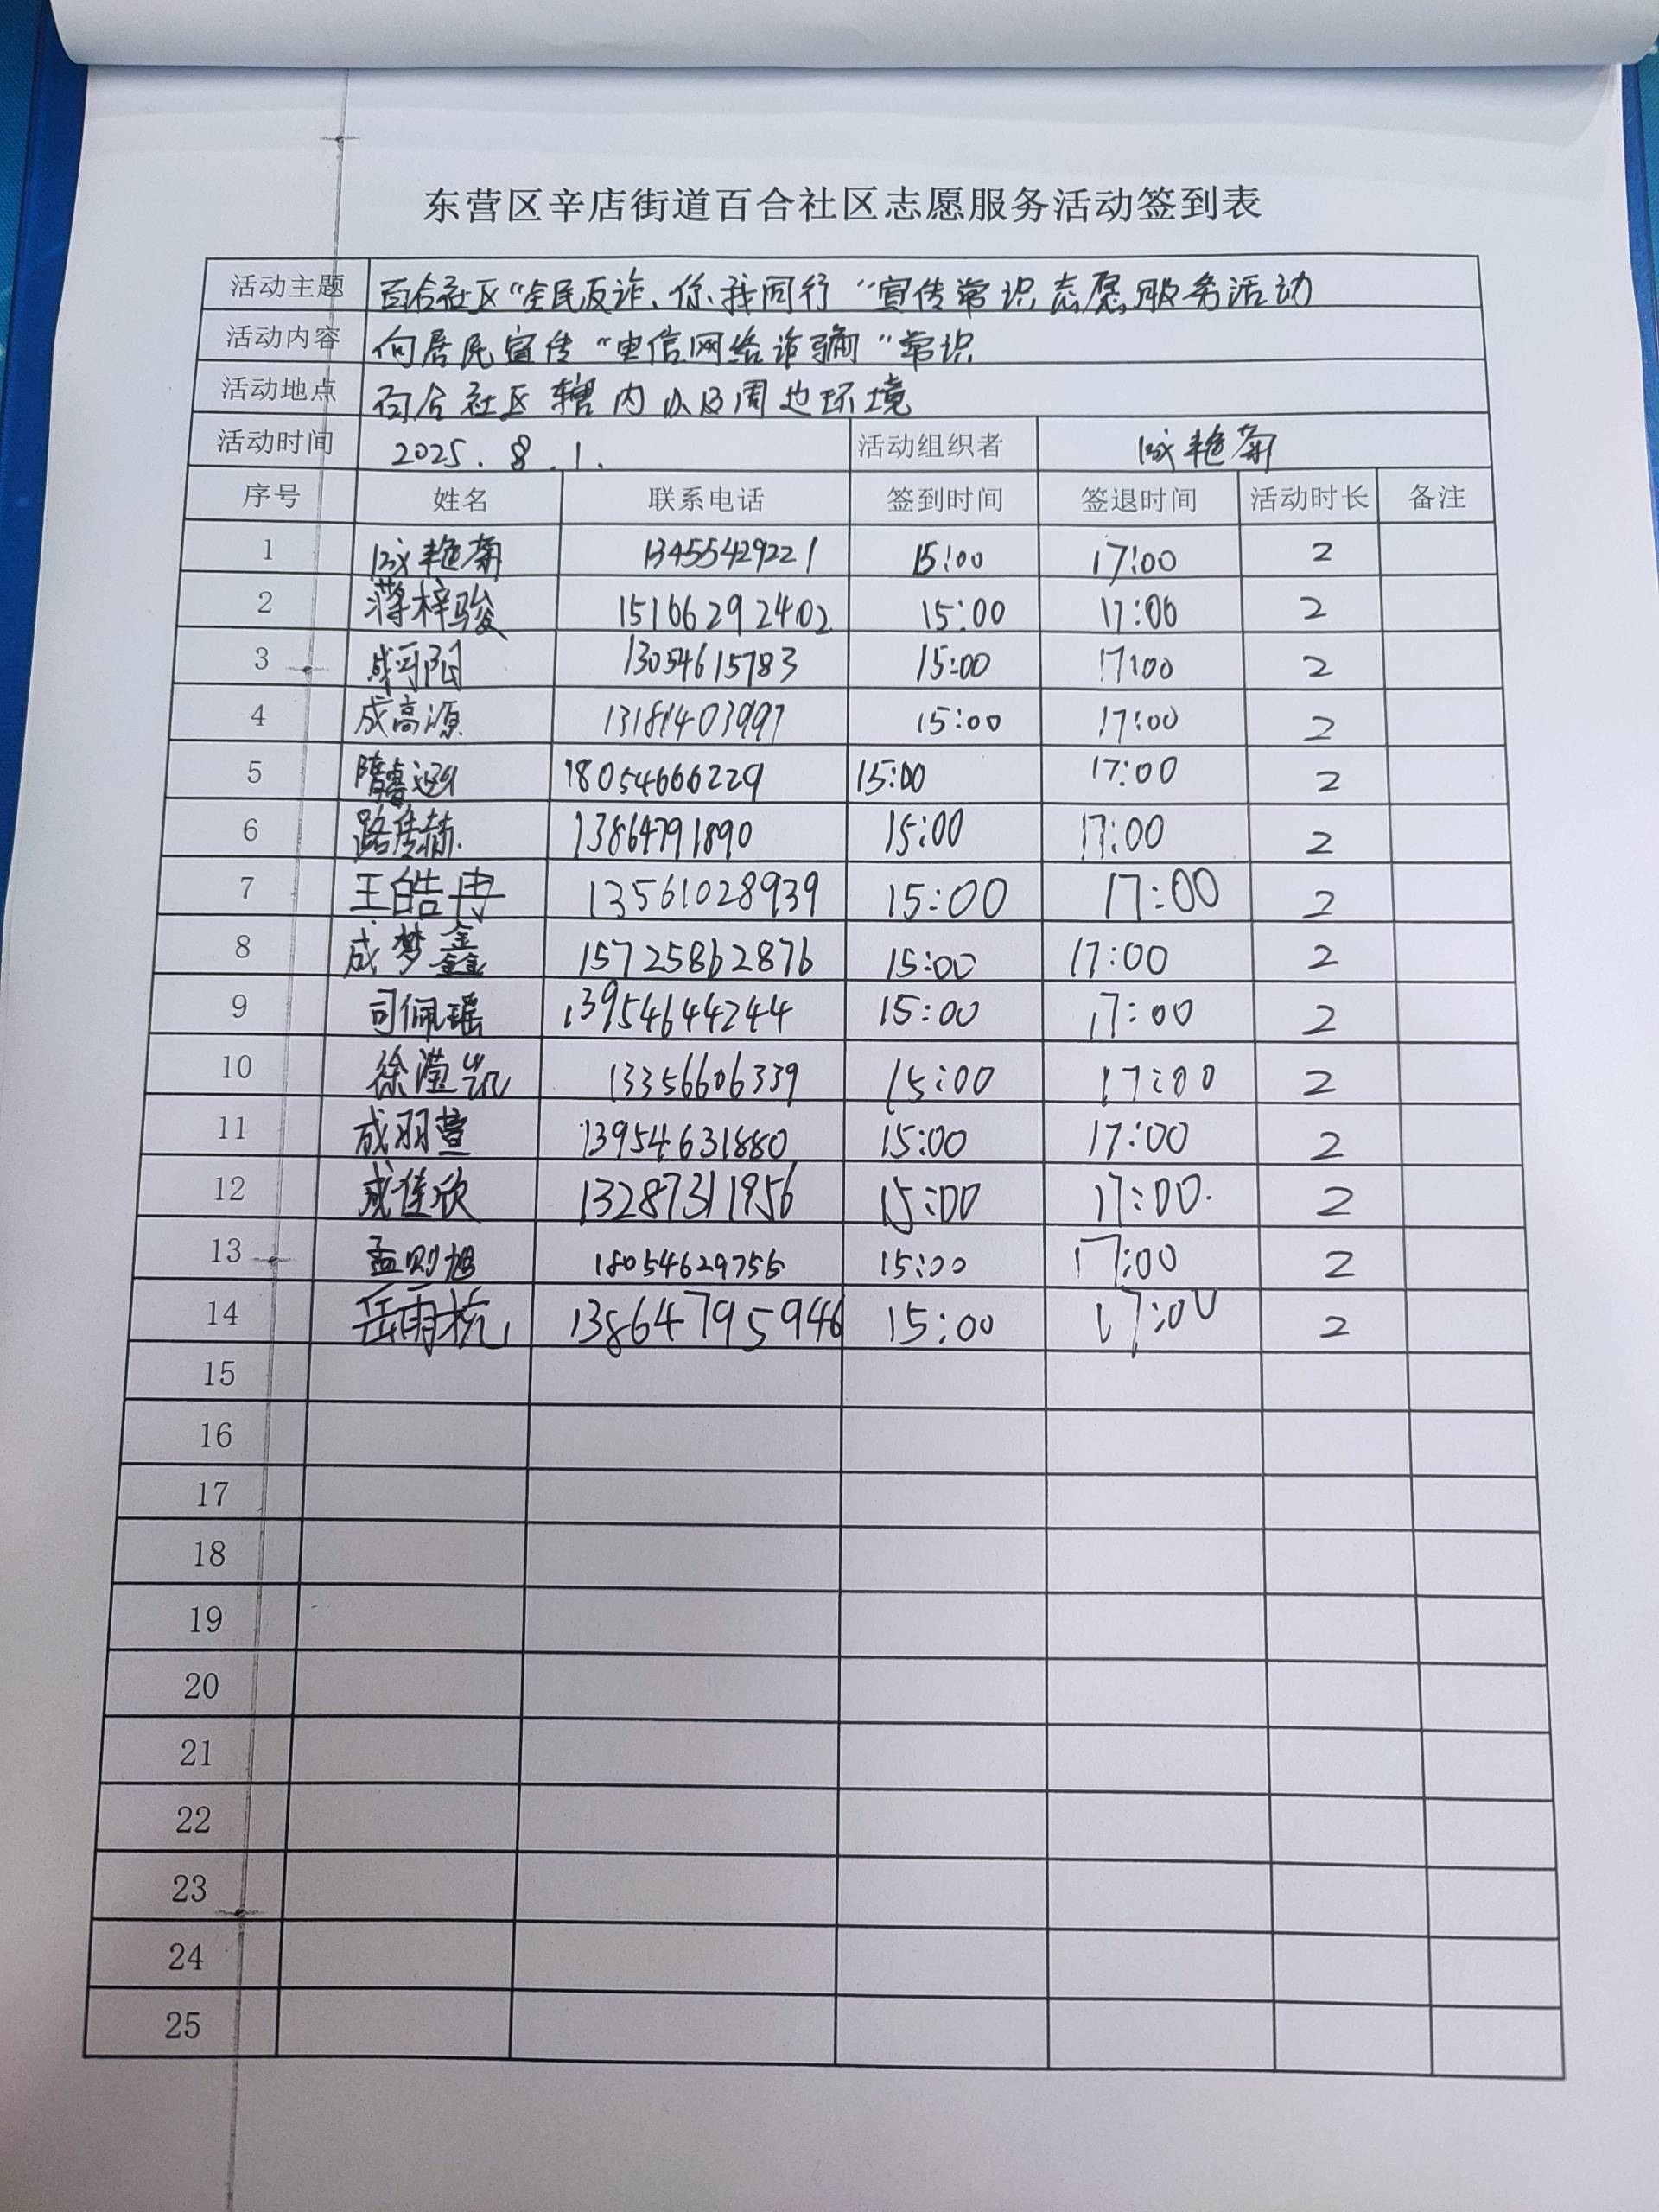 东营区辛店街道百合社区志愿服务活动签到表
活动主题 百合社区“全民反诈、你我同行”宣传常识志愿服务活动
活动内容 向居民宣传“电信网络诈骗”常识
活动地点 百合社区辖内以及周边环境
活动时间 2025.8.1. 活动组织者 艳菊
序号 姓名 联系电话 签到时间 签退时间 活动时长 备注
1 艳菊 13455429221 15:00 17:00 2
2 蒋梓骏 15166292402 15:00 17:00 2
3 成可阳 13054615783 15:00 17:00 2
4 成高源 13181403997 15:00 17:00 2
5 隋睿 18054666229 15:00 17:00 2
6 路传赫 13864791890 15:00 17:00 2
7 王皓冉 13561028939 15:00 17:00 2
8 成梦鑫 15725862876 15:00 17:00 2
9 司佩瑶 13954644244 15:00 17:00 2
10 徐滢凯 13356606339 15:00 17:00 2
11 成羽萱 13954631880 15:00 17:00 2
12 成佳欣 13287311956 15:00 17:00. 2
13 孟则旭 18054629755 15:00 17:00 2
14 岳雨杭 13864795946 15:00 17:00 2
15
16
17
18
19
20
21
22
23
24
25